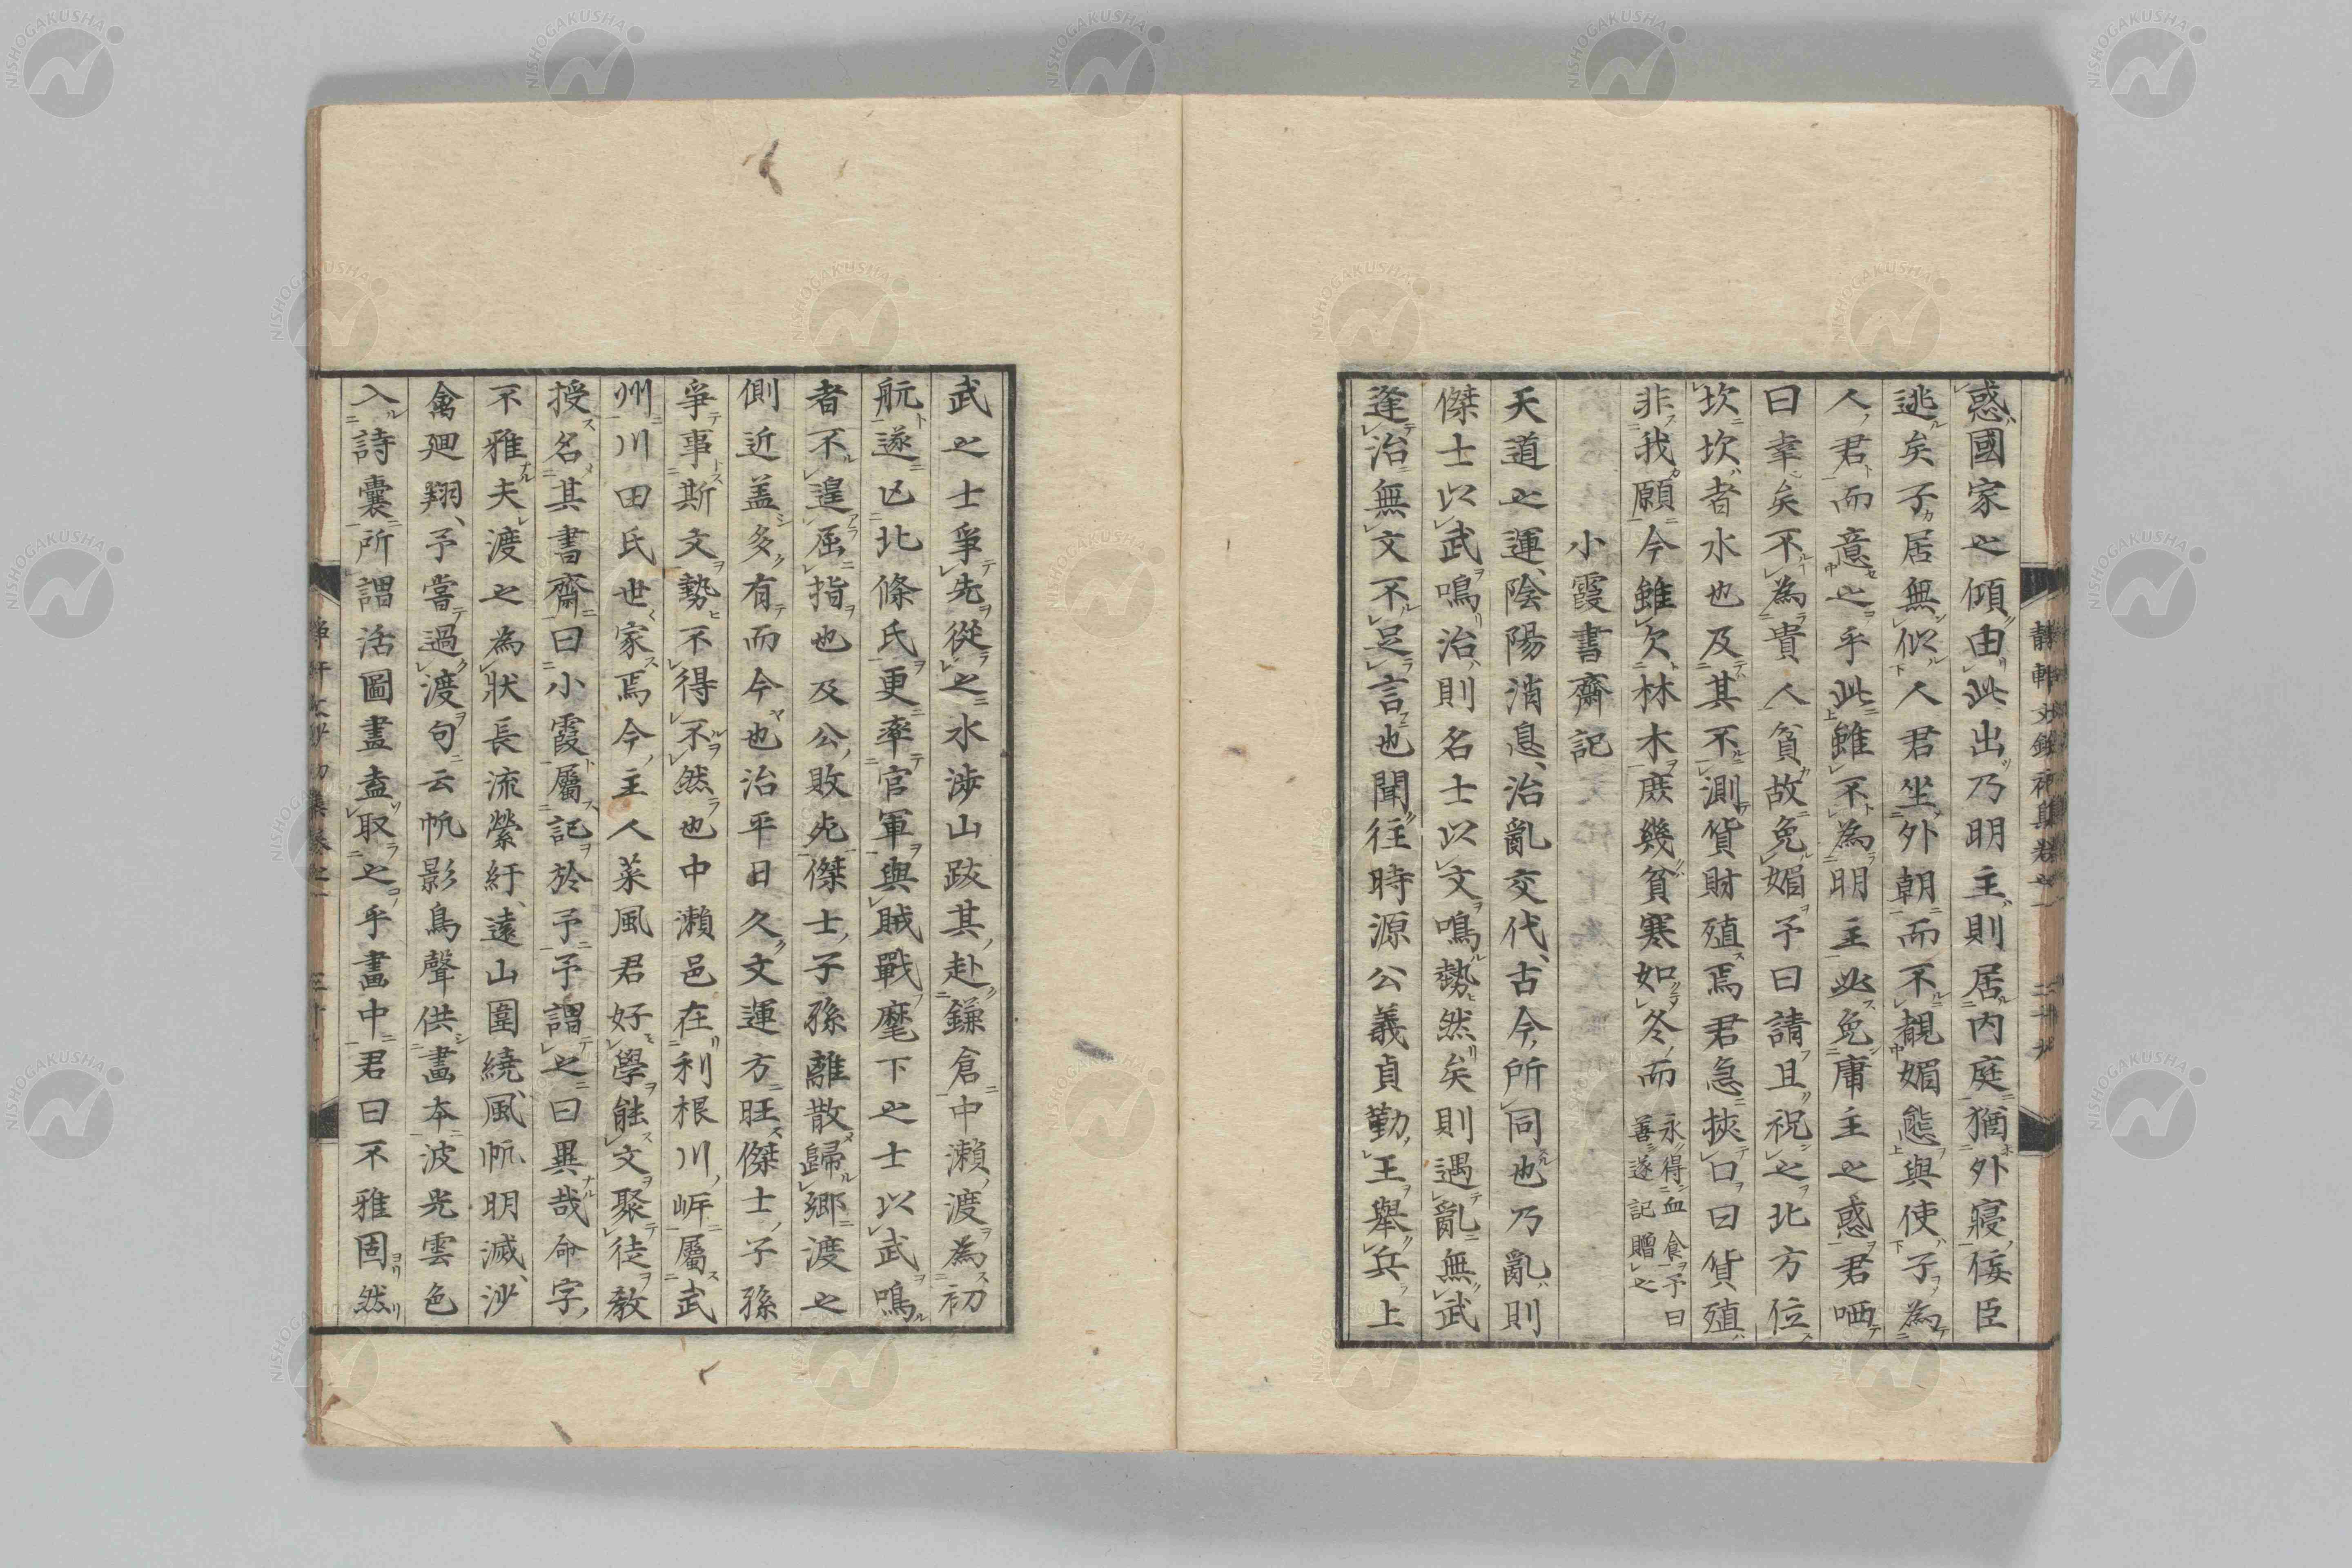 惑國家之傾由此出乃明主則居内庭猶外寢佞臣
逃矣子居無似人君坐外朝而不覩媚態與使子為
人君而意之乎此雖不為明主此免庸主之惑君哂
曰幸矣不為貴人貧故免媚予曰請且祝之北方位
坎坎者水也及其不測貨財殖焉君急挾口曰貨殖
非我願今雖欠林木庶幾貧寒如冬而
永得血食予曰
善遂記贈之
小霞書齋記
天道之運陰陽消息治亂交代古今所同也乃亂則
傑士以武鳴治則名士以文鳴勢然矣則遇亂無武
逢治無文不足言也聞往時源公義貞勤王舉兵上
武之士爭先從之水渉山跋其赴鎌倉中瀬渡為初
航遂亡北條氏更率官軍與賊戰麾下之士以武鳴
者不遑屈指也及公敗死傑士子孫離散歸郷渡之
側近盖多有而今也治平日久文運方旺傑士子孫
爭事斯文勢不得不然也中瀬邑在利根川岸屬武
州川田氏世家焉今主人菜風君好學能文聚徒教
授名其書齋曰小霞屬記於予予謂之曰異哉命字
不雅夫渡之為状長流縈紆遠山圍繞風帆明滅沙
禽廻翔予嘗過渡句云帆影鳥聲供畫本波光雲色
入詩囊所謂活圖畫盍取之乎畫中君曰不雅固然